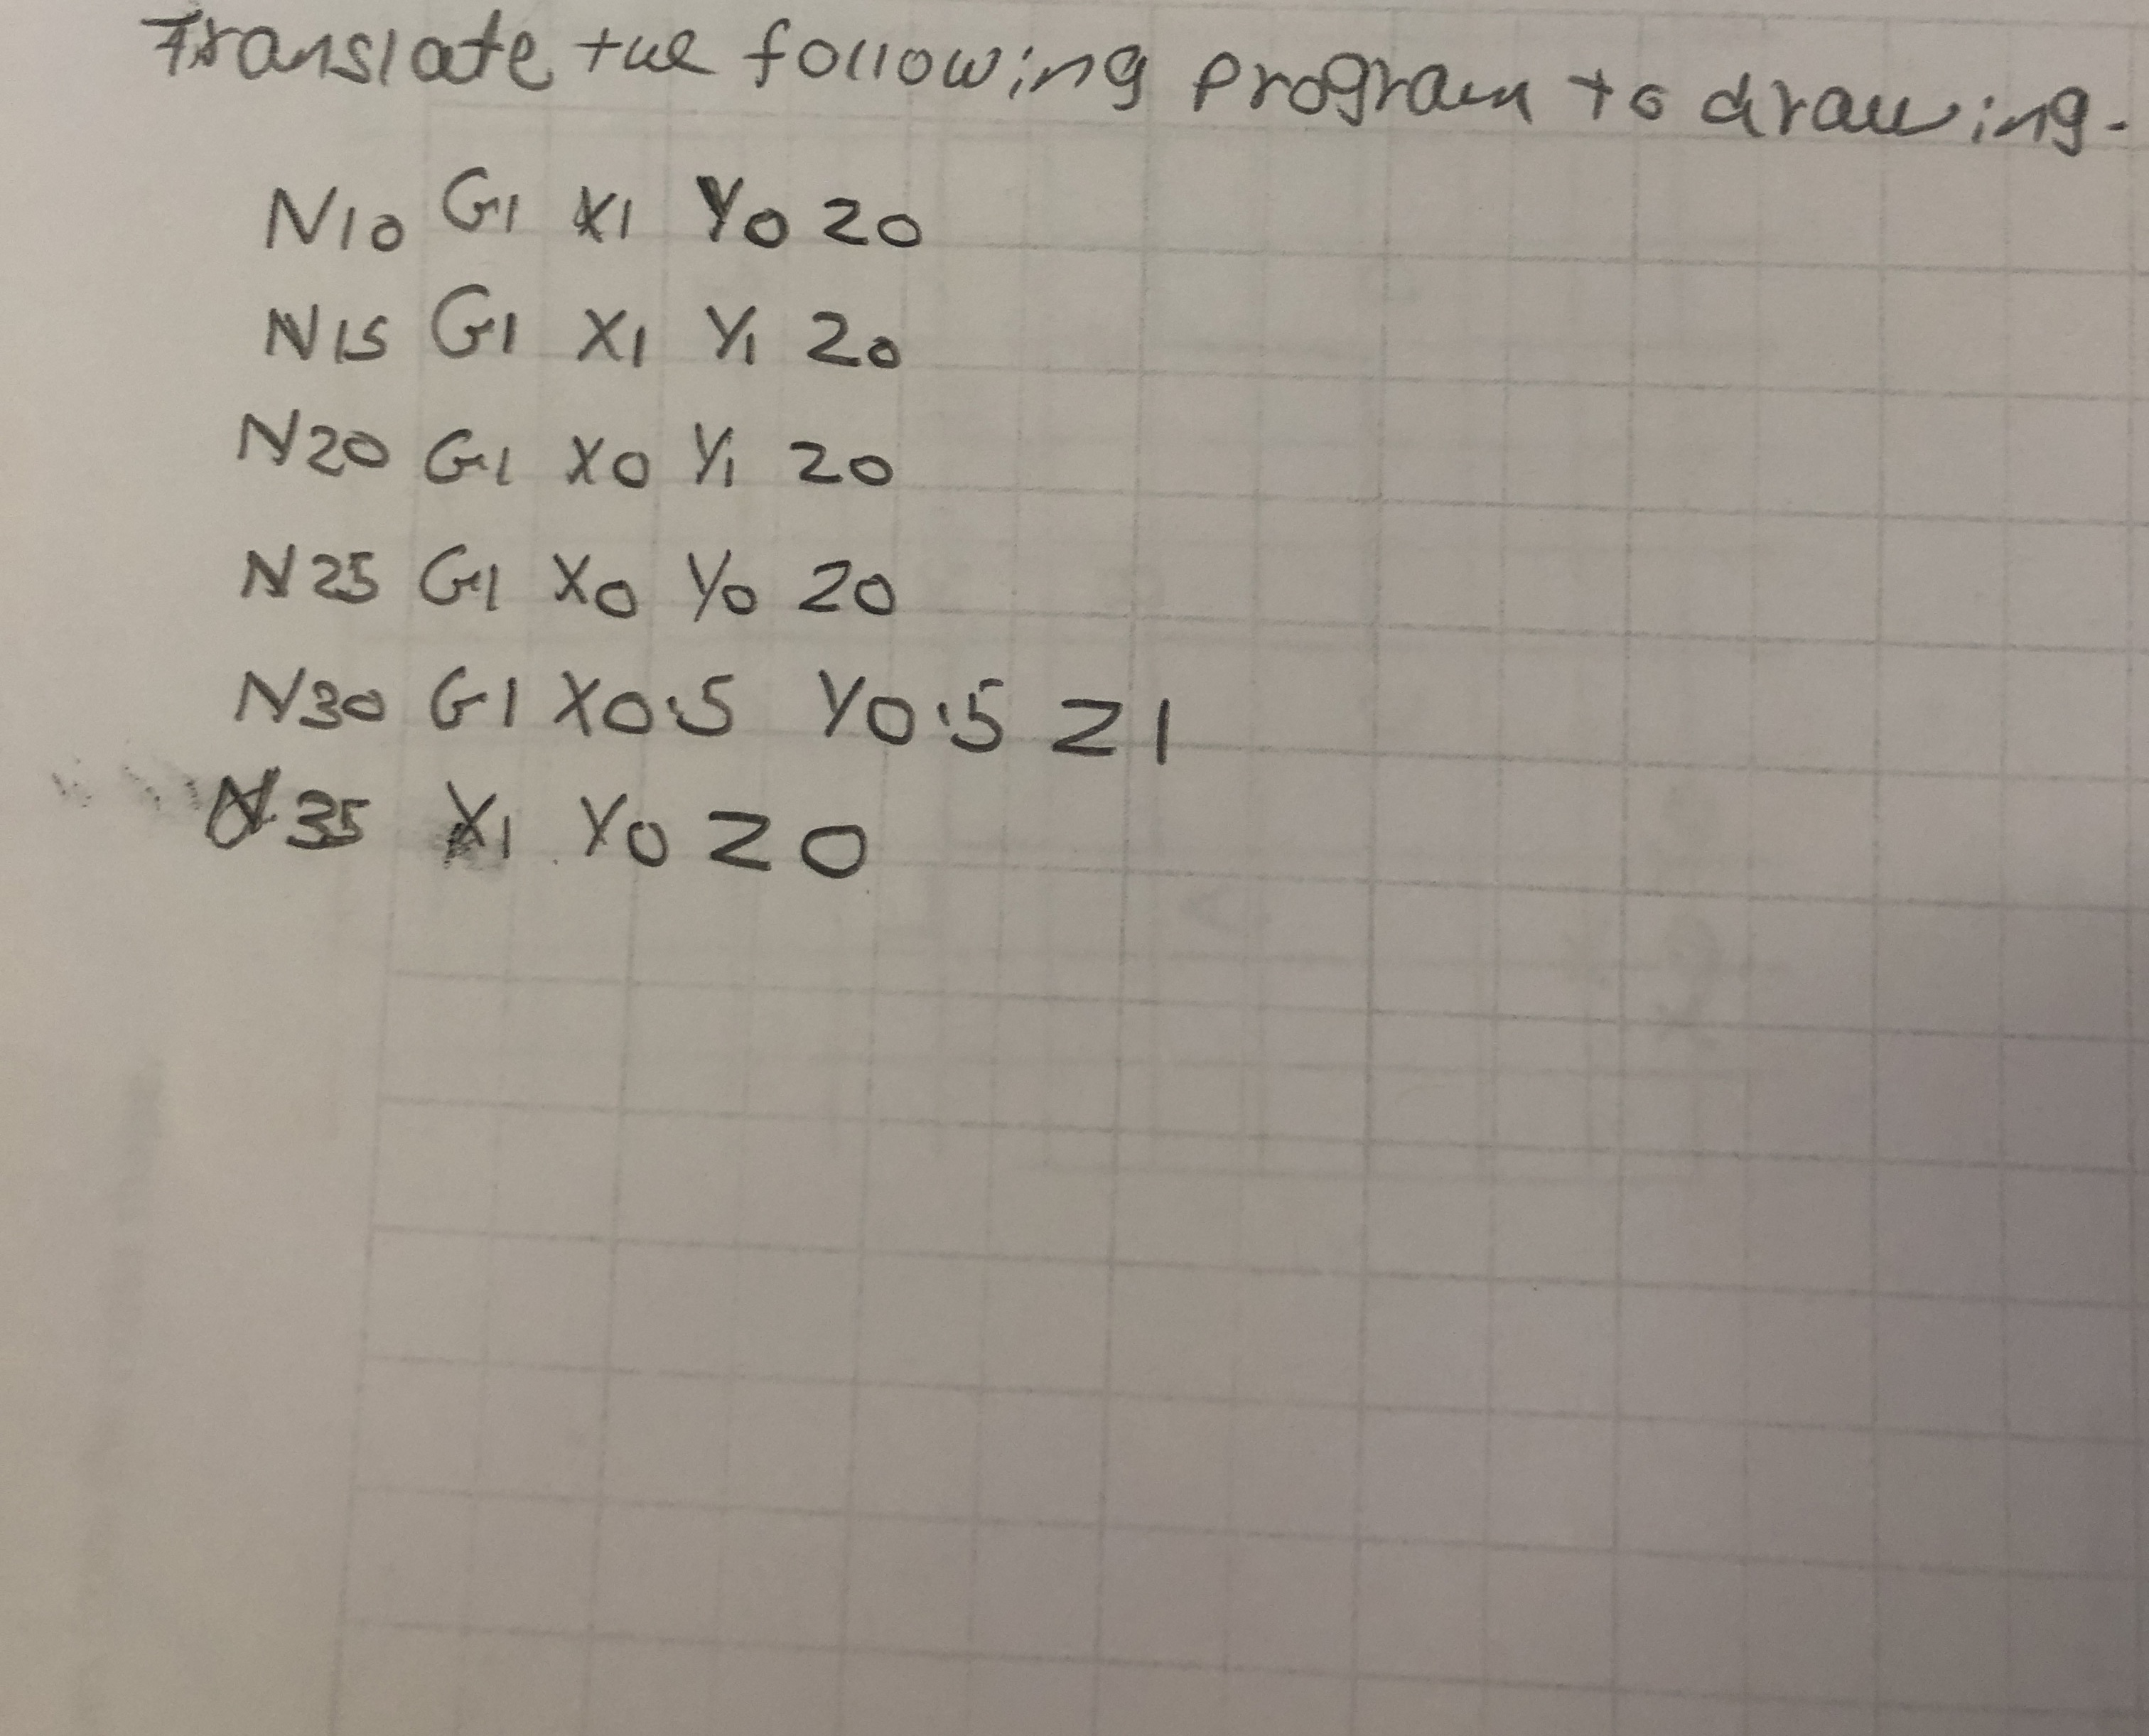 Translate the following program to drawing.
N10 G1 X1 Y0 Z0
N15 G1 X1 Y1 Z0
N20 G1 X0 Y1 Z0
N25 G1 X0 Y0 Z0
N30 G1 X0.5 Y0.5 Z1
N35 X1 Y0 Z0